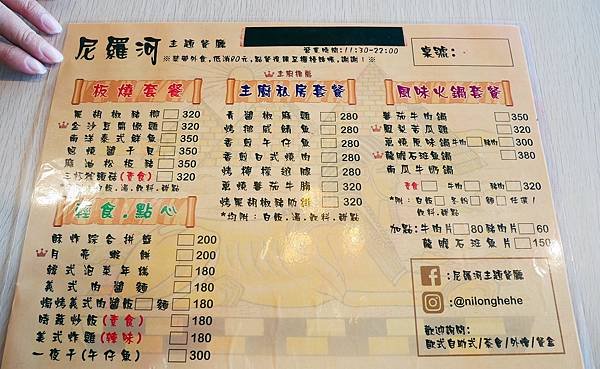 尼羅河 主題餐廳
營業時間:11:30-22:00
桌號:
※禁帶外食,低消80元,點餐後請至櫃檯結帳,謝謝!※
板燒套餐
黑胡椒豬柳 320
金沙豆腐嫩雞 320
南洋泰式鮮魚 350
麻油松板豬 350
三杯猴頭菇(素食) 320
主廚推薦
主廚私房套餐
青醬椒麻雞 280
烤挪威鯖魚 280
香煎午仔魚 280
香煎日式燒肉 280
烤檸檬雞腿 280
蔥燒番茄牛腩 320
烤黑胡椒豬肋排 320
*均附:白飯.湯.飲料.甜點
風味火鍋套餐
番茄牛肉鍋 350
鳳梨苦瓜雞 320
蔥燒原味鍋 牛肉 豬肉 300
龍膽石斑魚鍋 380
南瓜牛奶鍋
素食 牛肉 豬肉 320
飲料.甜點
加點:牛肉片 80 豬肉片 60
龍膽石斑魚片 150
輕食.點心
酥炸綜合拼盤 200
月亮蝦餅 200
韓式泡菜年糕 180
義式肉醬麵 180
焗烤義式肉醬飯 麵 180
時蔬炒飯(素食) 180
美式炸雞(辣味) 180
一夜干(午仔魚) 300
:尼羅河主題餐廳
:@nilonghehe
歡迎詢問:
歐式自助式/茶會/外燴/餐盒